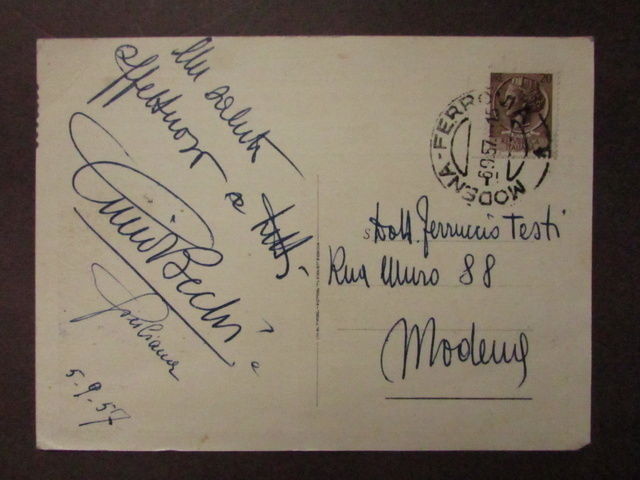 Un saluto
affettuoso
a tutti
Gino Bechi
e
Giuliana
5-9-57
MODENA-FERROVIA
6.9.57
Dott. Ferruccio Testi
Rua Muro 88
Modena